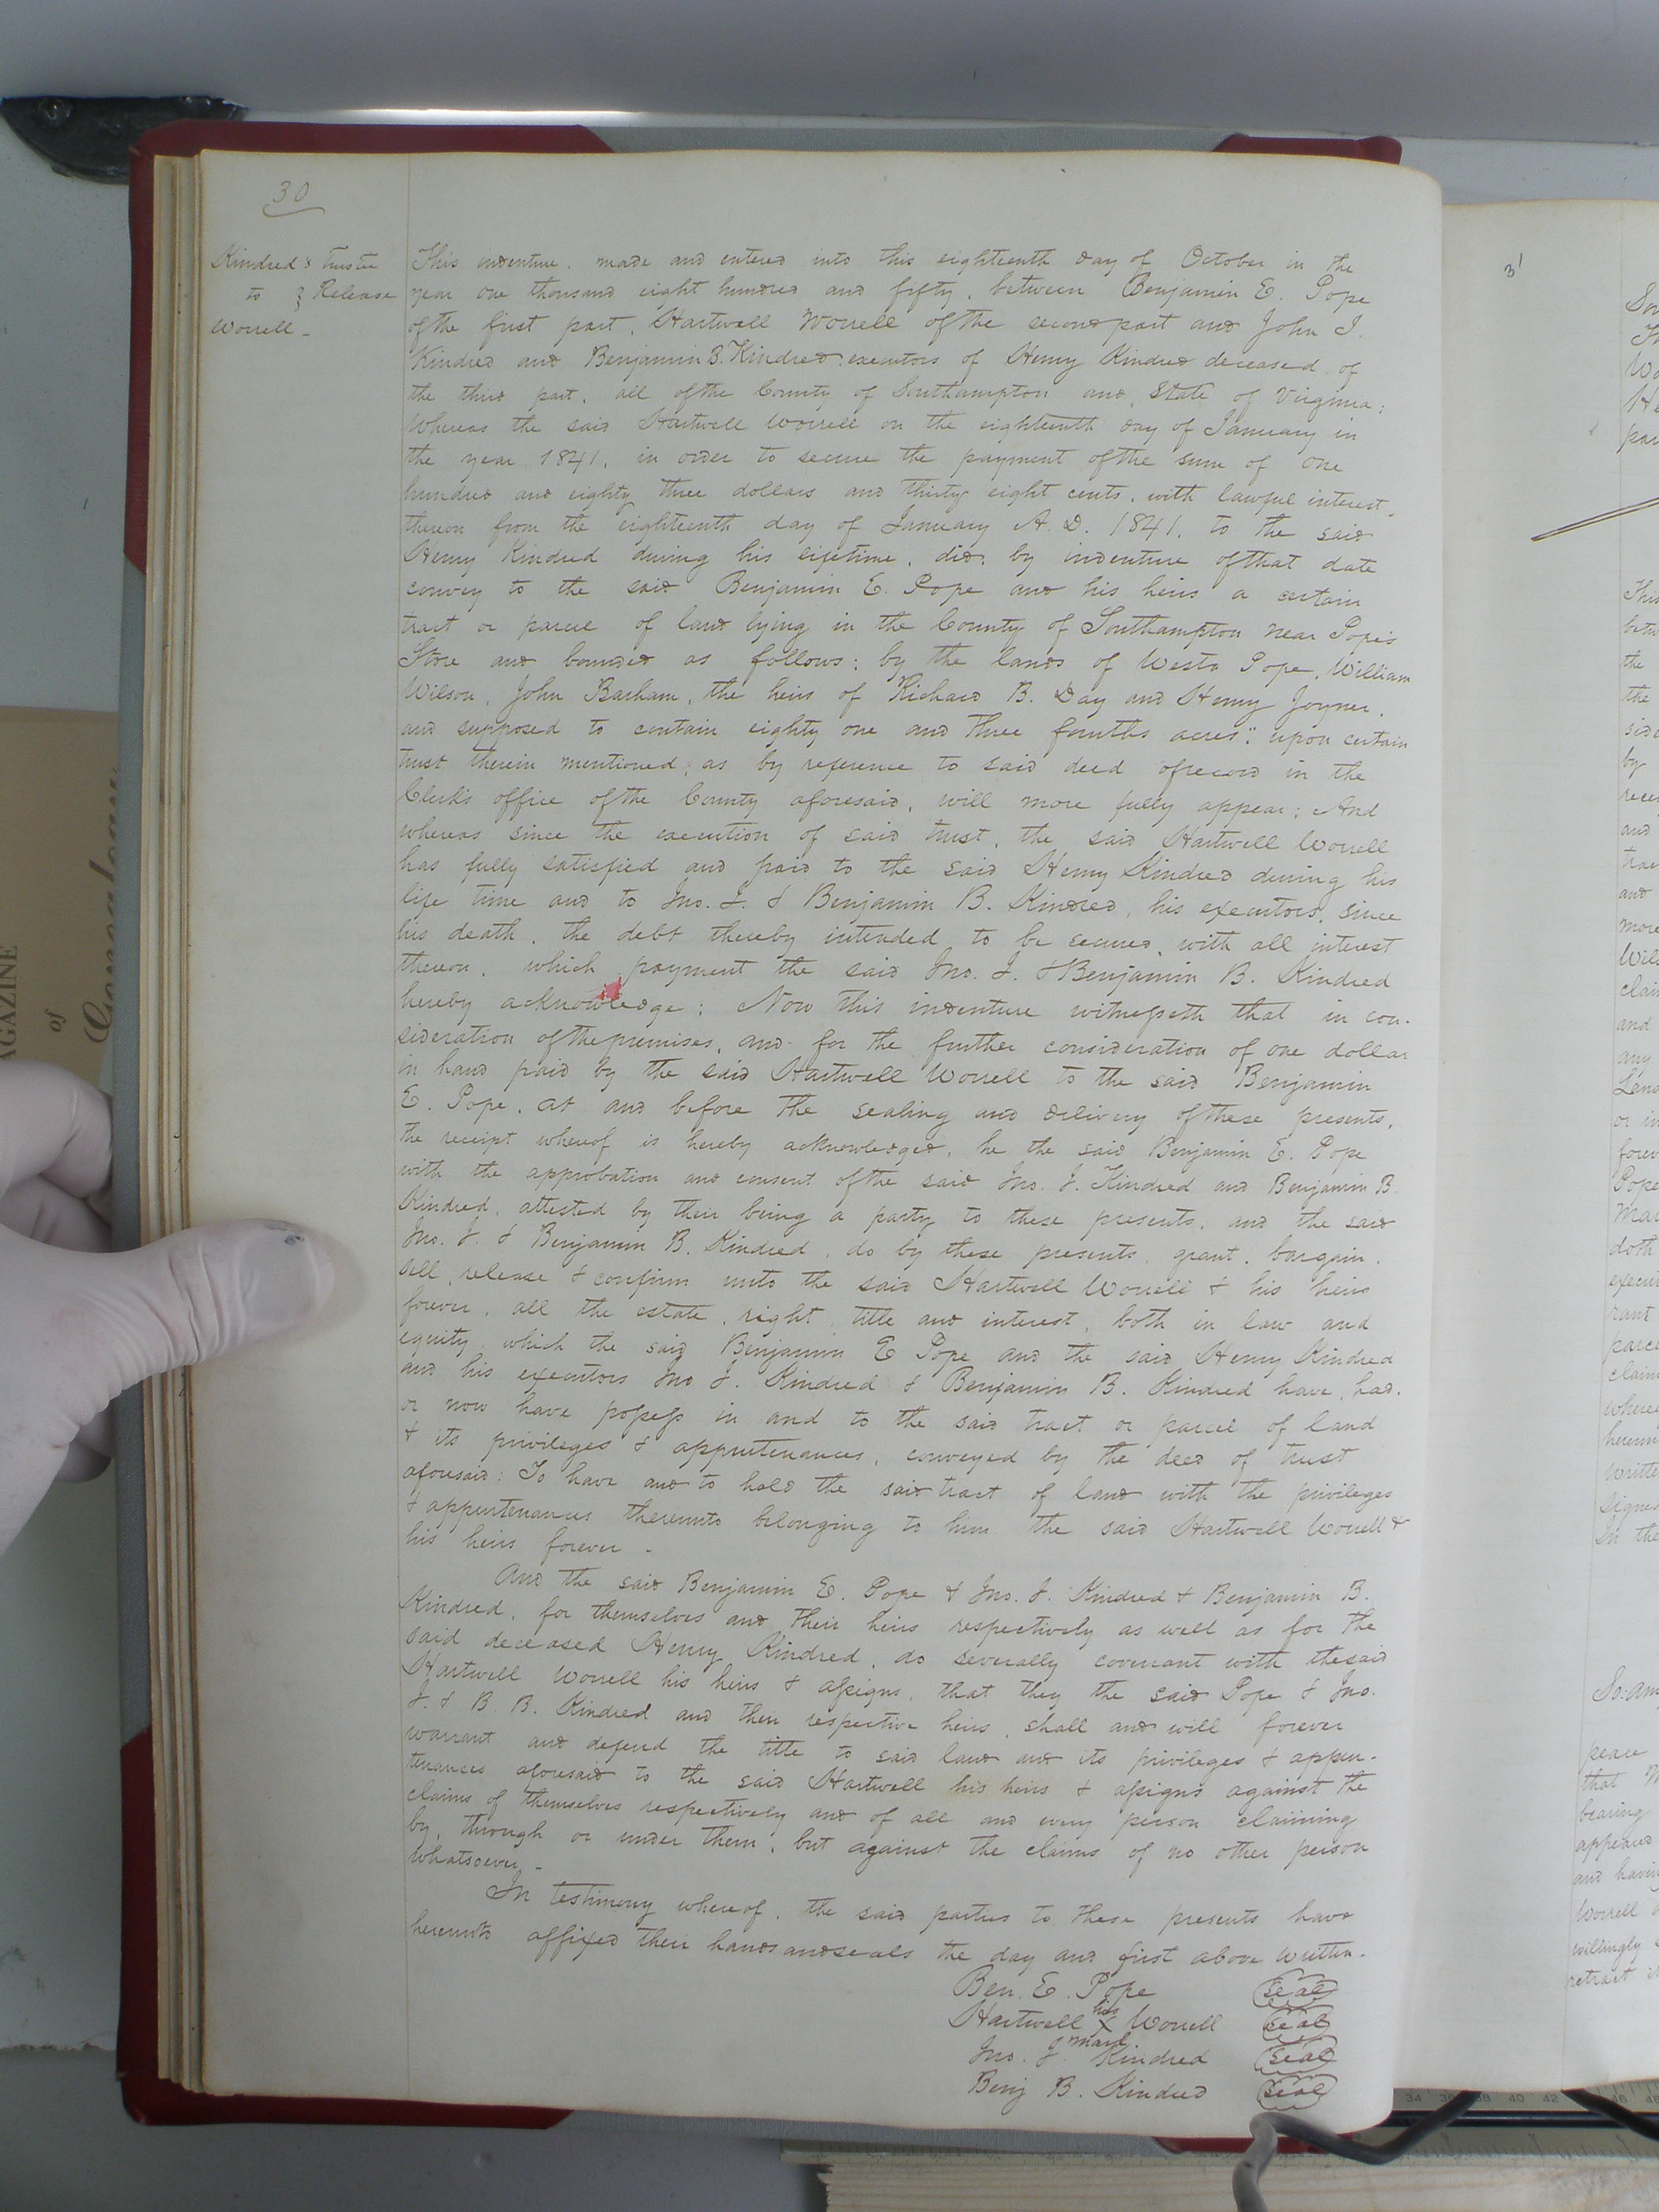 30
Kindred's Trustee
to } Release
Worrell -
This indenture, made and entered into this eighteenth day of October in the
year one thousand eight hundred and fifty, between Benjamin E. Pope
of the first part, Hartwell Worrell of the second part and John J.
Kindred and Benjamin B. Kindred executors of Henry Kindred deceased of
the third part, all of the County of Southampton and State of Virginia;
Whereas the said Hartwell Worrell on the eighteenth day of January in
the year 1841, in order to secure the payment of the sum of one
hundred and eighty three dollars and thirty eight cents, with lawful interest
thereon from the eighteenth day of January A. D. 1841, to the said
Henry Kindred during his lifetime, did, by indenture of that date
convey to the said Benjamin E. Pope and his heirs a certain
tract or parcel of land lying in the County of Southampton near Pope's
Store and bounded as follows: by the lands of Wests Pope, William
Wilson, John Barham, the heirs of Richard B. Day and Henry Joyner,
and supposed to contain eighty one and three fourths acres": upon certain
trust therein mentioned, as by reference to said deed of record in the
Clerk's office of the County aforesaid, will more fully appear; And
whereas since the execution of said trust, the said Hartwell Worrell
has fully satisfied and paid to the said Henry Kindred during his
life time and to Jno. J. & Benjamin B. Kindred, his executors, since
his death, the debt thereby intended to be secured, with all interest
thereon, which payment the said Jno. J. & Benjamin B. Kindred
hereby acknowledge; Now this indenture witnesseth that in con-
sideration of the premises, and for the further consideration of one dollar
in hand paid by the said Hartwell Worrell to the said Benjamin
E. Pope, at and before the sealing and delivery of these presents,
the receipt whereof is hereby acknowledged, he the said Benjamin E. Pope
with the approbation and consent of the said Jno. J. Kindred and Benjamin B.
Kindred, attested by their being a party to these presents, and the said
Jno. J. & Benjamin B. Kindred, do by these presents grant, bargain,
sell, release & confirm unto the said Hartwell Worrell & his heirs
forever, all the estate, right, title and interest, both in law and
equity, which the said Benjamin E Pope and the said Henry Kindred
and his executors Jno J. Kindred & Benjamin B. Kindred have, had,
or now have possess in and to the said tract or parcel of land
& its privileges & appurtenances, conveyed by the deed of trust
aforesaid: To have and to hold the said tract of land with the privileges
& appurtenances thereunto belonging to him the said Hartwell Worrell &
his heirs forever -
And the said Benjamin E. Pope & Jno. J. Kindred & Benjamin B.
Kindred, for themselves and their heirs respectively as well as for the
said deceased Henry Kindred, do severally covenant with the said
Hartwell Worrell his heirs & assigns, that they the said Pope & Jno.
J. & B. B. Kindred and their respective heirs, shall and will forever
warrant and defend the title to said land and its privileges & appur-
tenances aforesaid to the said Hartwell his heirs & assigns against the
claims of themselves respectively and of all and every person claiming
by, through or under them, but against the claims of no other person
whatsoever -
In testimony whereof, the said parties to these presents have
hereunto affixed their hands and seals the day and first above written.
Ben. E. Pope seal
Hartwell his X mark Worrell seal
Jno. J. Kindred seal
Benj B. Kindred seal
31